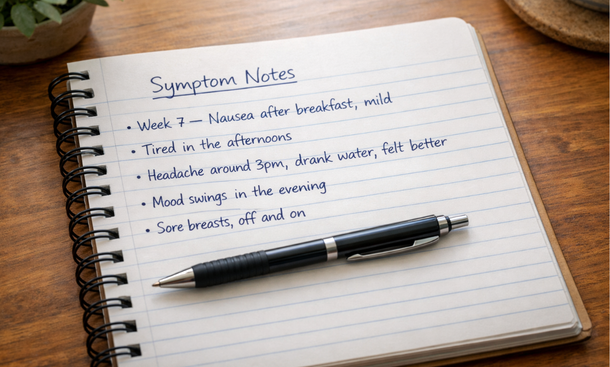 Symptom Notes
• Week 7 — Nausea after breakfast, mild
• Tired in the afternoons
• Headache around 3pm, drank water, felt better
• Mood swings in the evening
• Sore breasts, off and on